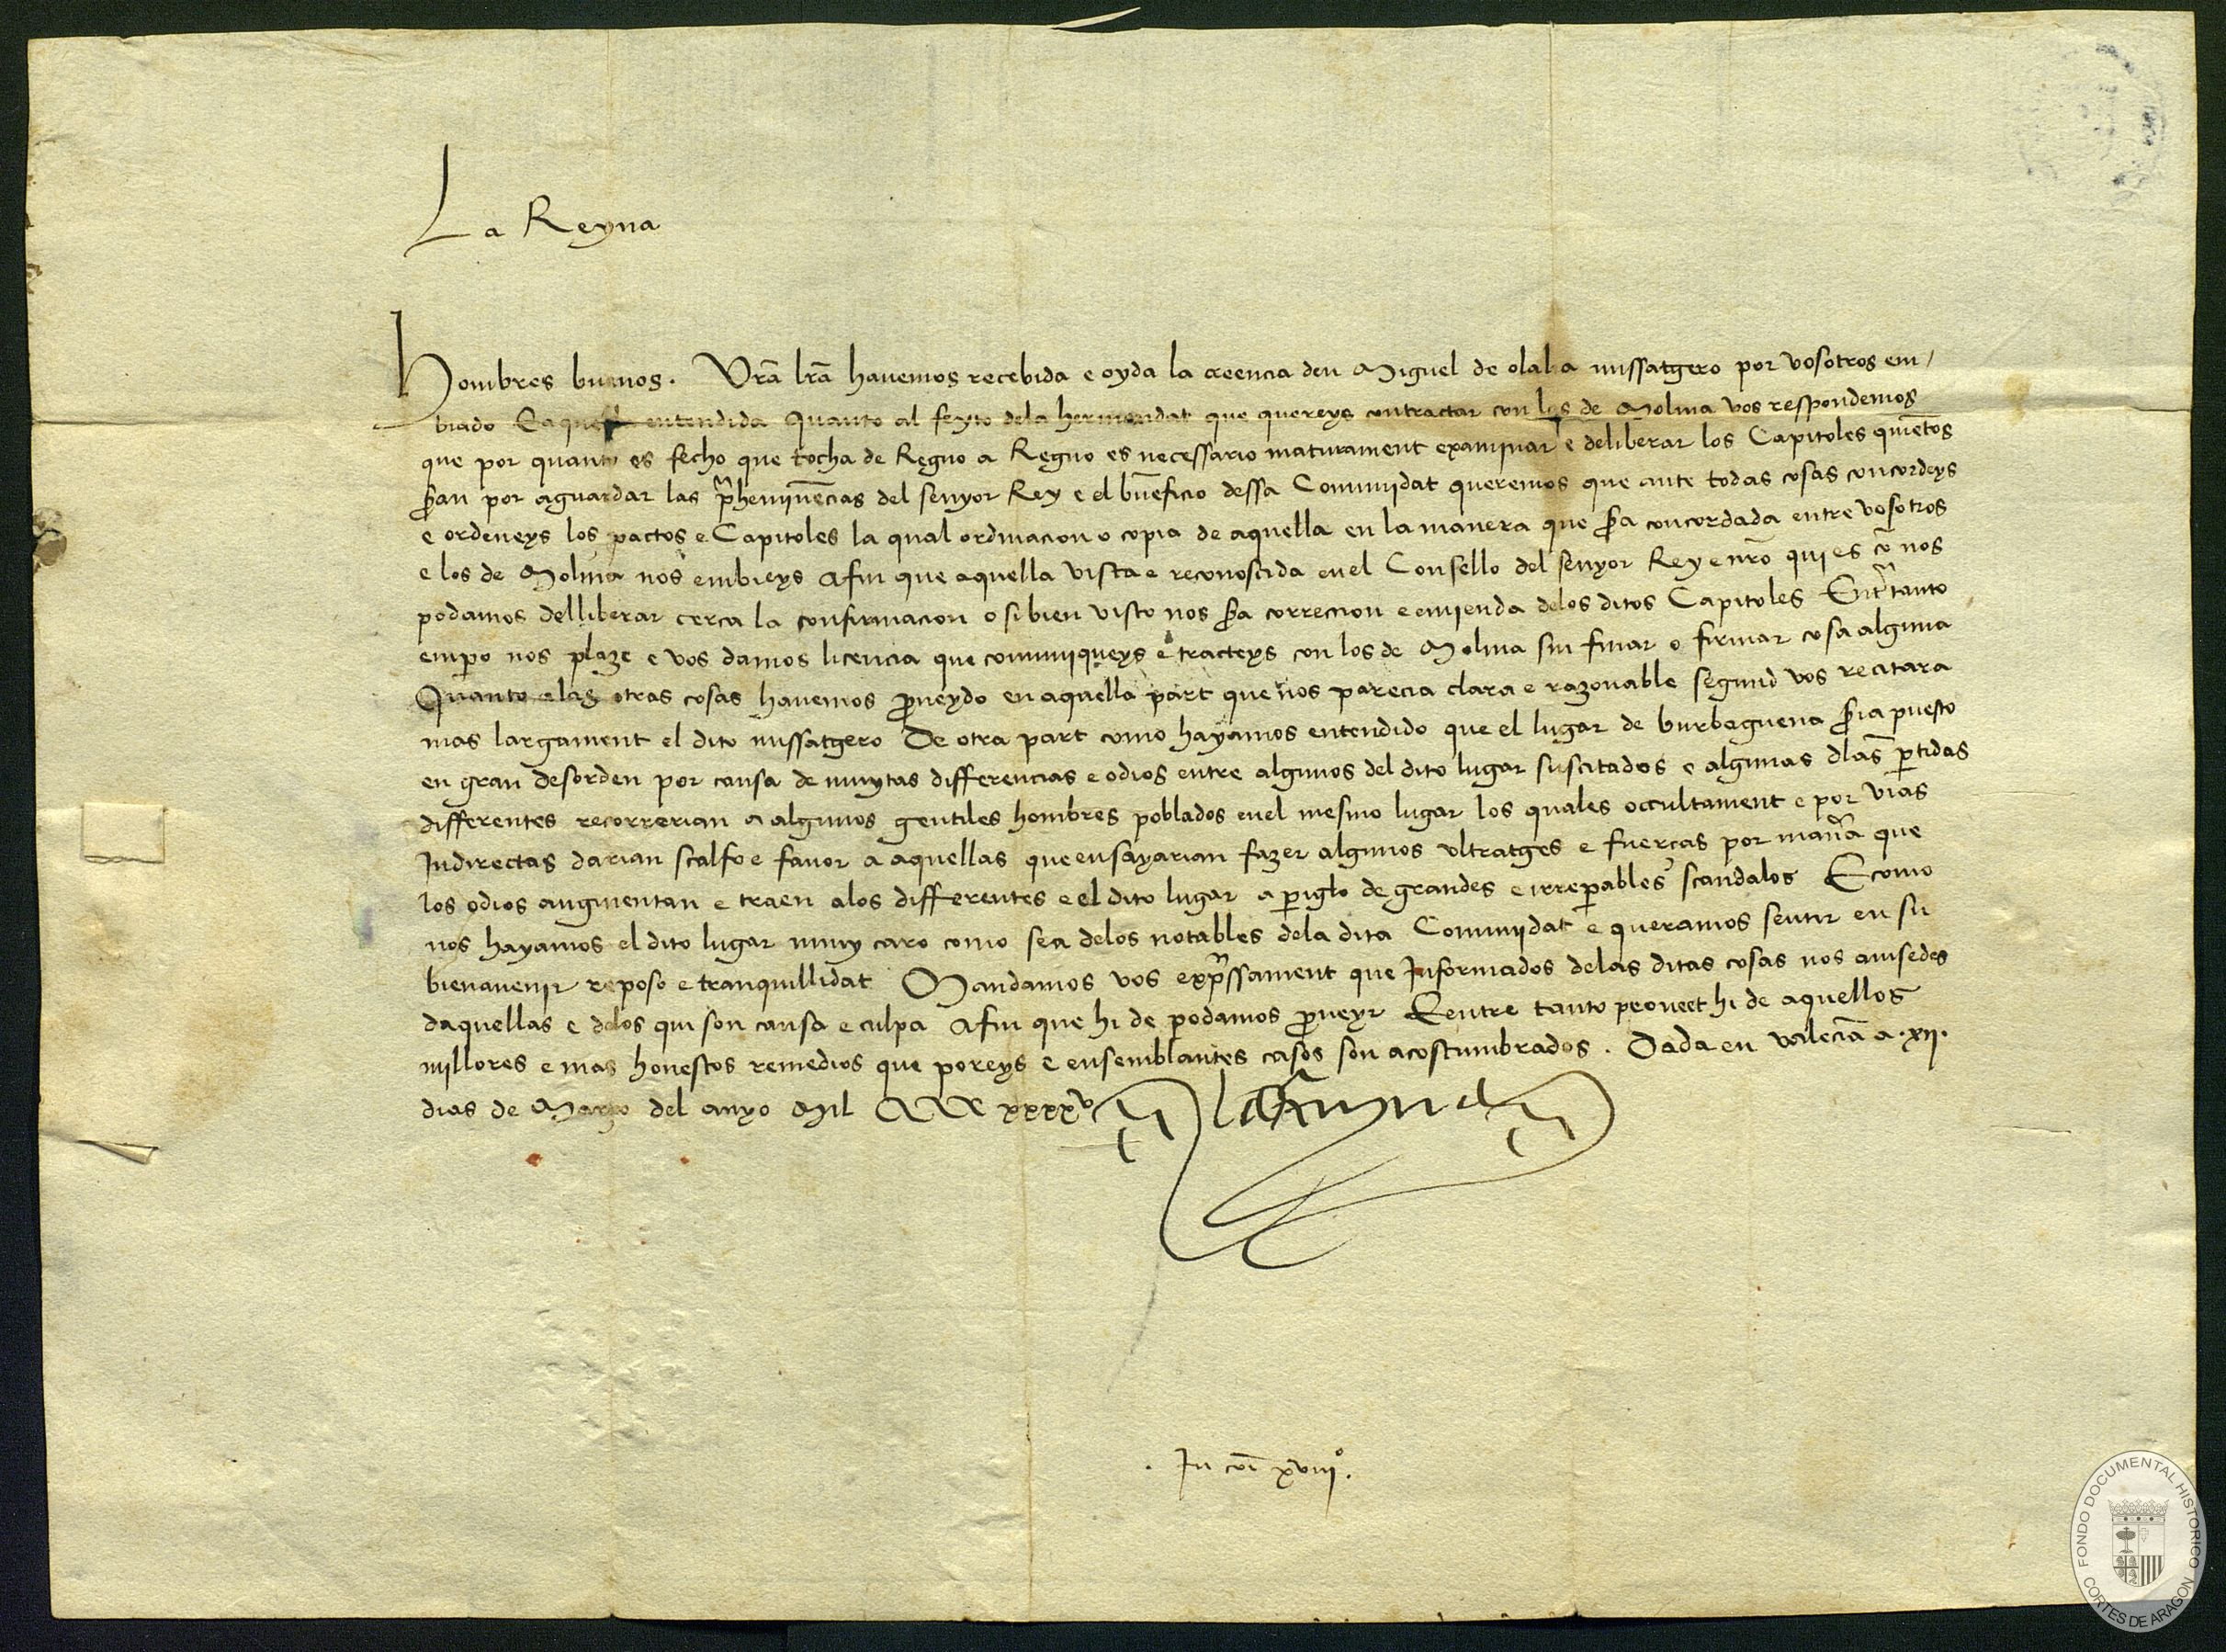 La Reyna
Hombres buenos. Vrã lrã hauemos recebida e oyda la creencia den Miguel de olalia missatgero por vosotros em-
biado E aquella entendida Quanto al feyto dela hermendat que quereys contractar con los de Molina vos respondemos
que por quanto es fecho que tocha de Regno a Regno es necessario maturament examinar e deliberar los Capitoles
por aguardar las del senyor Rey e el bñeficio dessa Comunidat queremos que ante todas cosas concordeys
e ordeneys los pactos e Capitoles la qual ordinacion o copia de aquella en la manera que concordada entre vosotros
e los de Molina nos embieys Afin que aquella vista e reconoscida enel Consello del senyor Rey e nrõ qui es nos
podamos delliberar cerca la confirmacion o si bien visto nos correccion e emienda delos ditos Capitoles Entrtanto
empero nos plaze e vos damos licencia que comuniqueys e tracteys con los de Molina sin finar o firmar cosa alguna
Quanto alas otras cosas hauemos proueydo en aquella part que nos parecia clara e razonable segund vos recitara
mas largament el dito missatgero De otra part como hayamos entendido que el lugar de burbaguena puesto
en gran desorden por causa de muytas differencias e odios entre algunos del dito lugar suscitados e algunas dlas ptidas
differentes recorrerian a algunos gentiles hombres poblados enel mesmo lugar los quales occultament e por vias
Indirectas darian scalfo e fauor a aquellas que ensayarian fazer algunos vltratges e fuerças por manã que
los odios augmentan e traen alos differentes e el dito lugar a piglo de grandes e irrepables scandalos E como
nos hayamos el dito lugar muy caro como sea delos notables dela dita Comunidat e queramos sentir en su
bienauenir reposo e tranquillidat Mandamos vos expssament que Informados delas ditas cosas nos auisedes
daquellas e delos qui son causa e culpa Afin que hi de podamos proueyr E entre tanto proueet hi de aquellos
millores e mas honestos remedios que poreys e ensemblantes casos son acostumbrados. Dada en valencia a .xii.
dias de Março del anyo Mil CCCC xxxxº la Reyna
. In coi xviiiº.
FONDO DOCUMENTAL HISTORICO
CORTES DE ARAGON